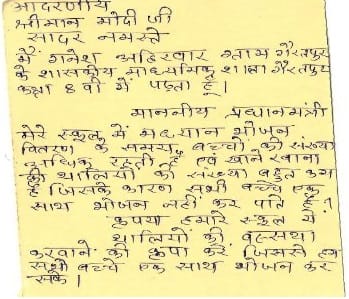 आदरणीय
श्रीमान मोदी जी
सादर नमस्ते
मैं गनेश अहिरवार ग्राम गैरतपुर
के शासकीय माध्यमिक शाला गैरतपुर
कक्षा 8 वी में पढ़ता हूँ।
माननीय प्रधानमंत्री
मेरे स्कूल में मध्यान भोजन
वितरण के समय बच्चों की संख्या
अधिक रहती है एवं खाने खाना
की थालियों की संख्या बहुत कम
है जिसके कारण सभी बच्चे एक
साथ भोजन नही कर पाते है।
कृपया हमारे स्कूल में
थालियों की व्यस्था
करवाने की कृपा करें जिससे हम
सभी बच्चे एक साथ भोजन कर
सके।